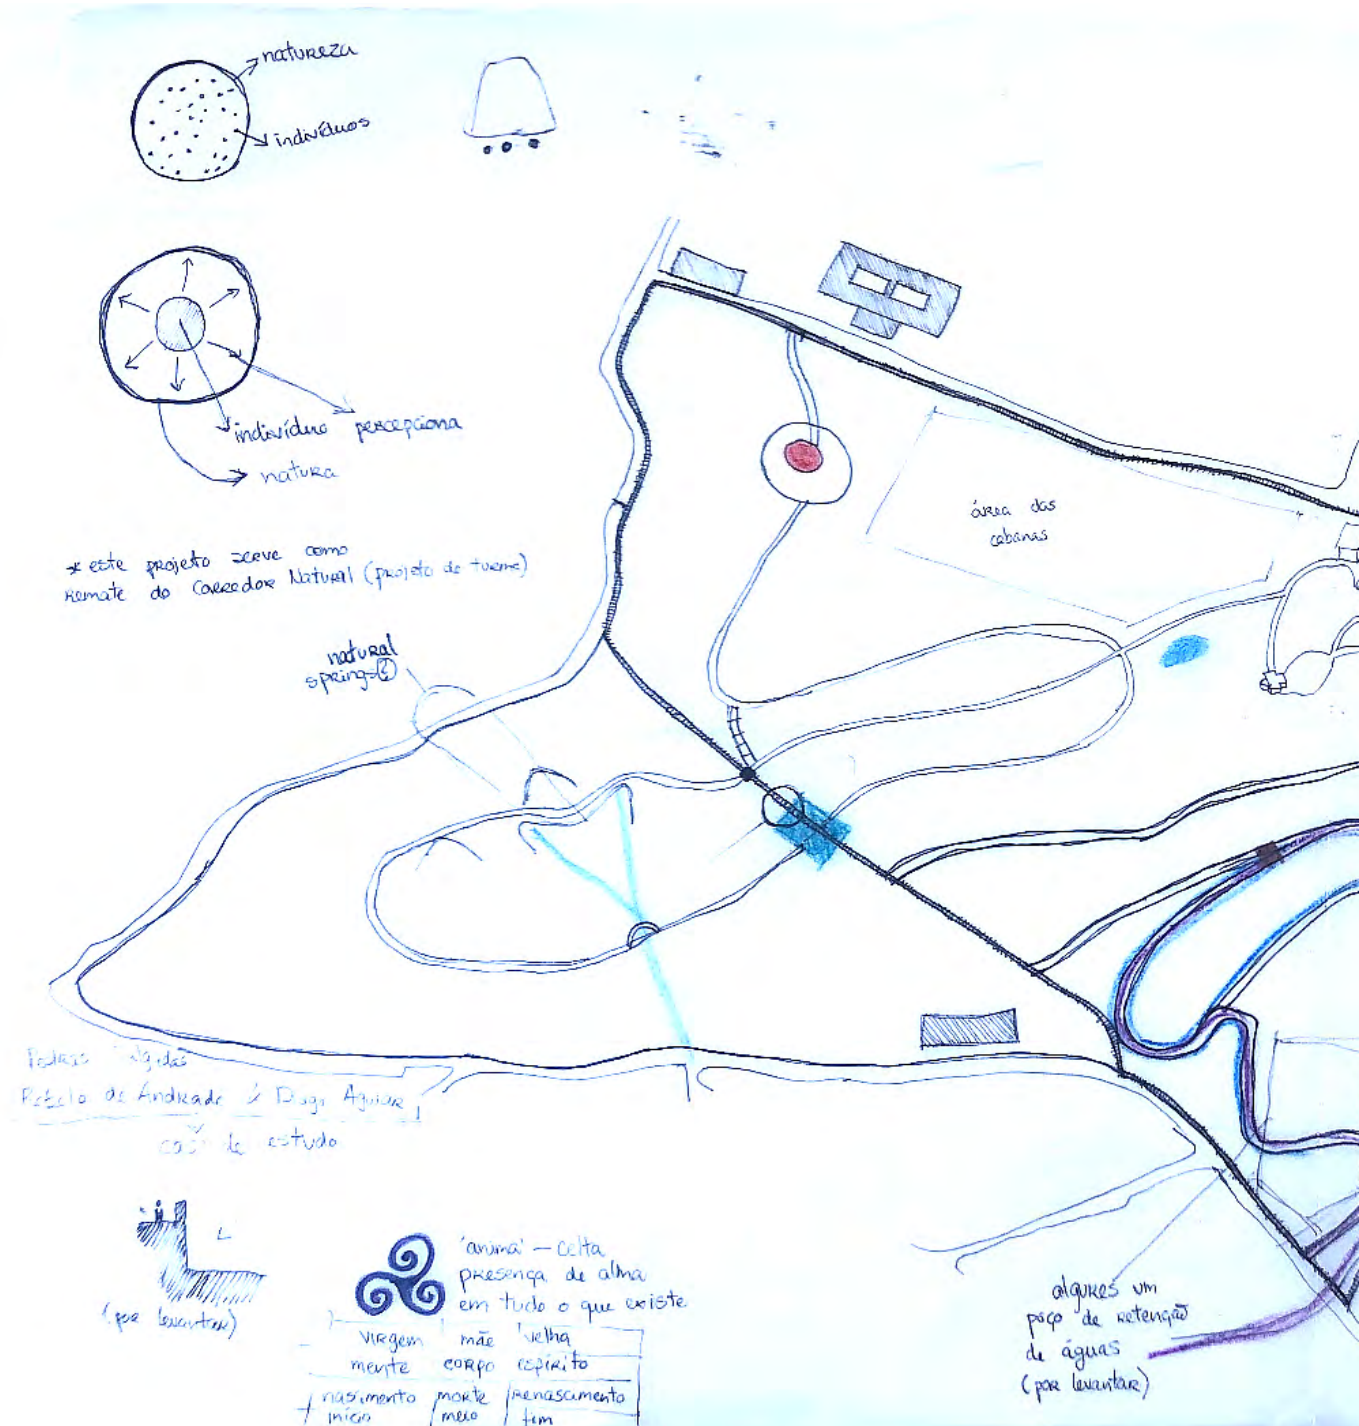 natureza
indivíduos
indivíduo percepciona
natura
* este projeto serve como
remate do Corredor Natural (projeto de turma)
natural
springs(?)
área das
cabanas
Pedras
Rebelo de Andrade & Diogo Aguiar
caso de estudo
(por levantar)
'anima' – celta
presença de alma
em tudo o que existe
virgem mãe velha
mente corpo espírito
nascimento morte renascimento
início meio fim
algures um
poço de retenção
de águas
(por levantar)